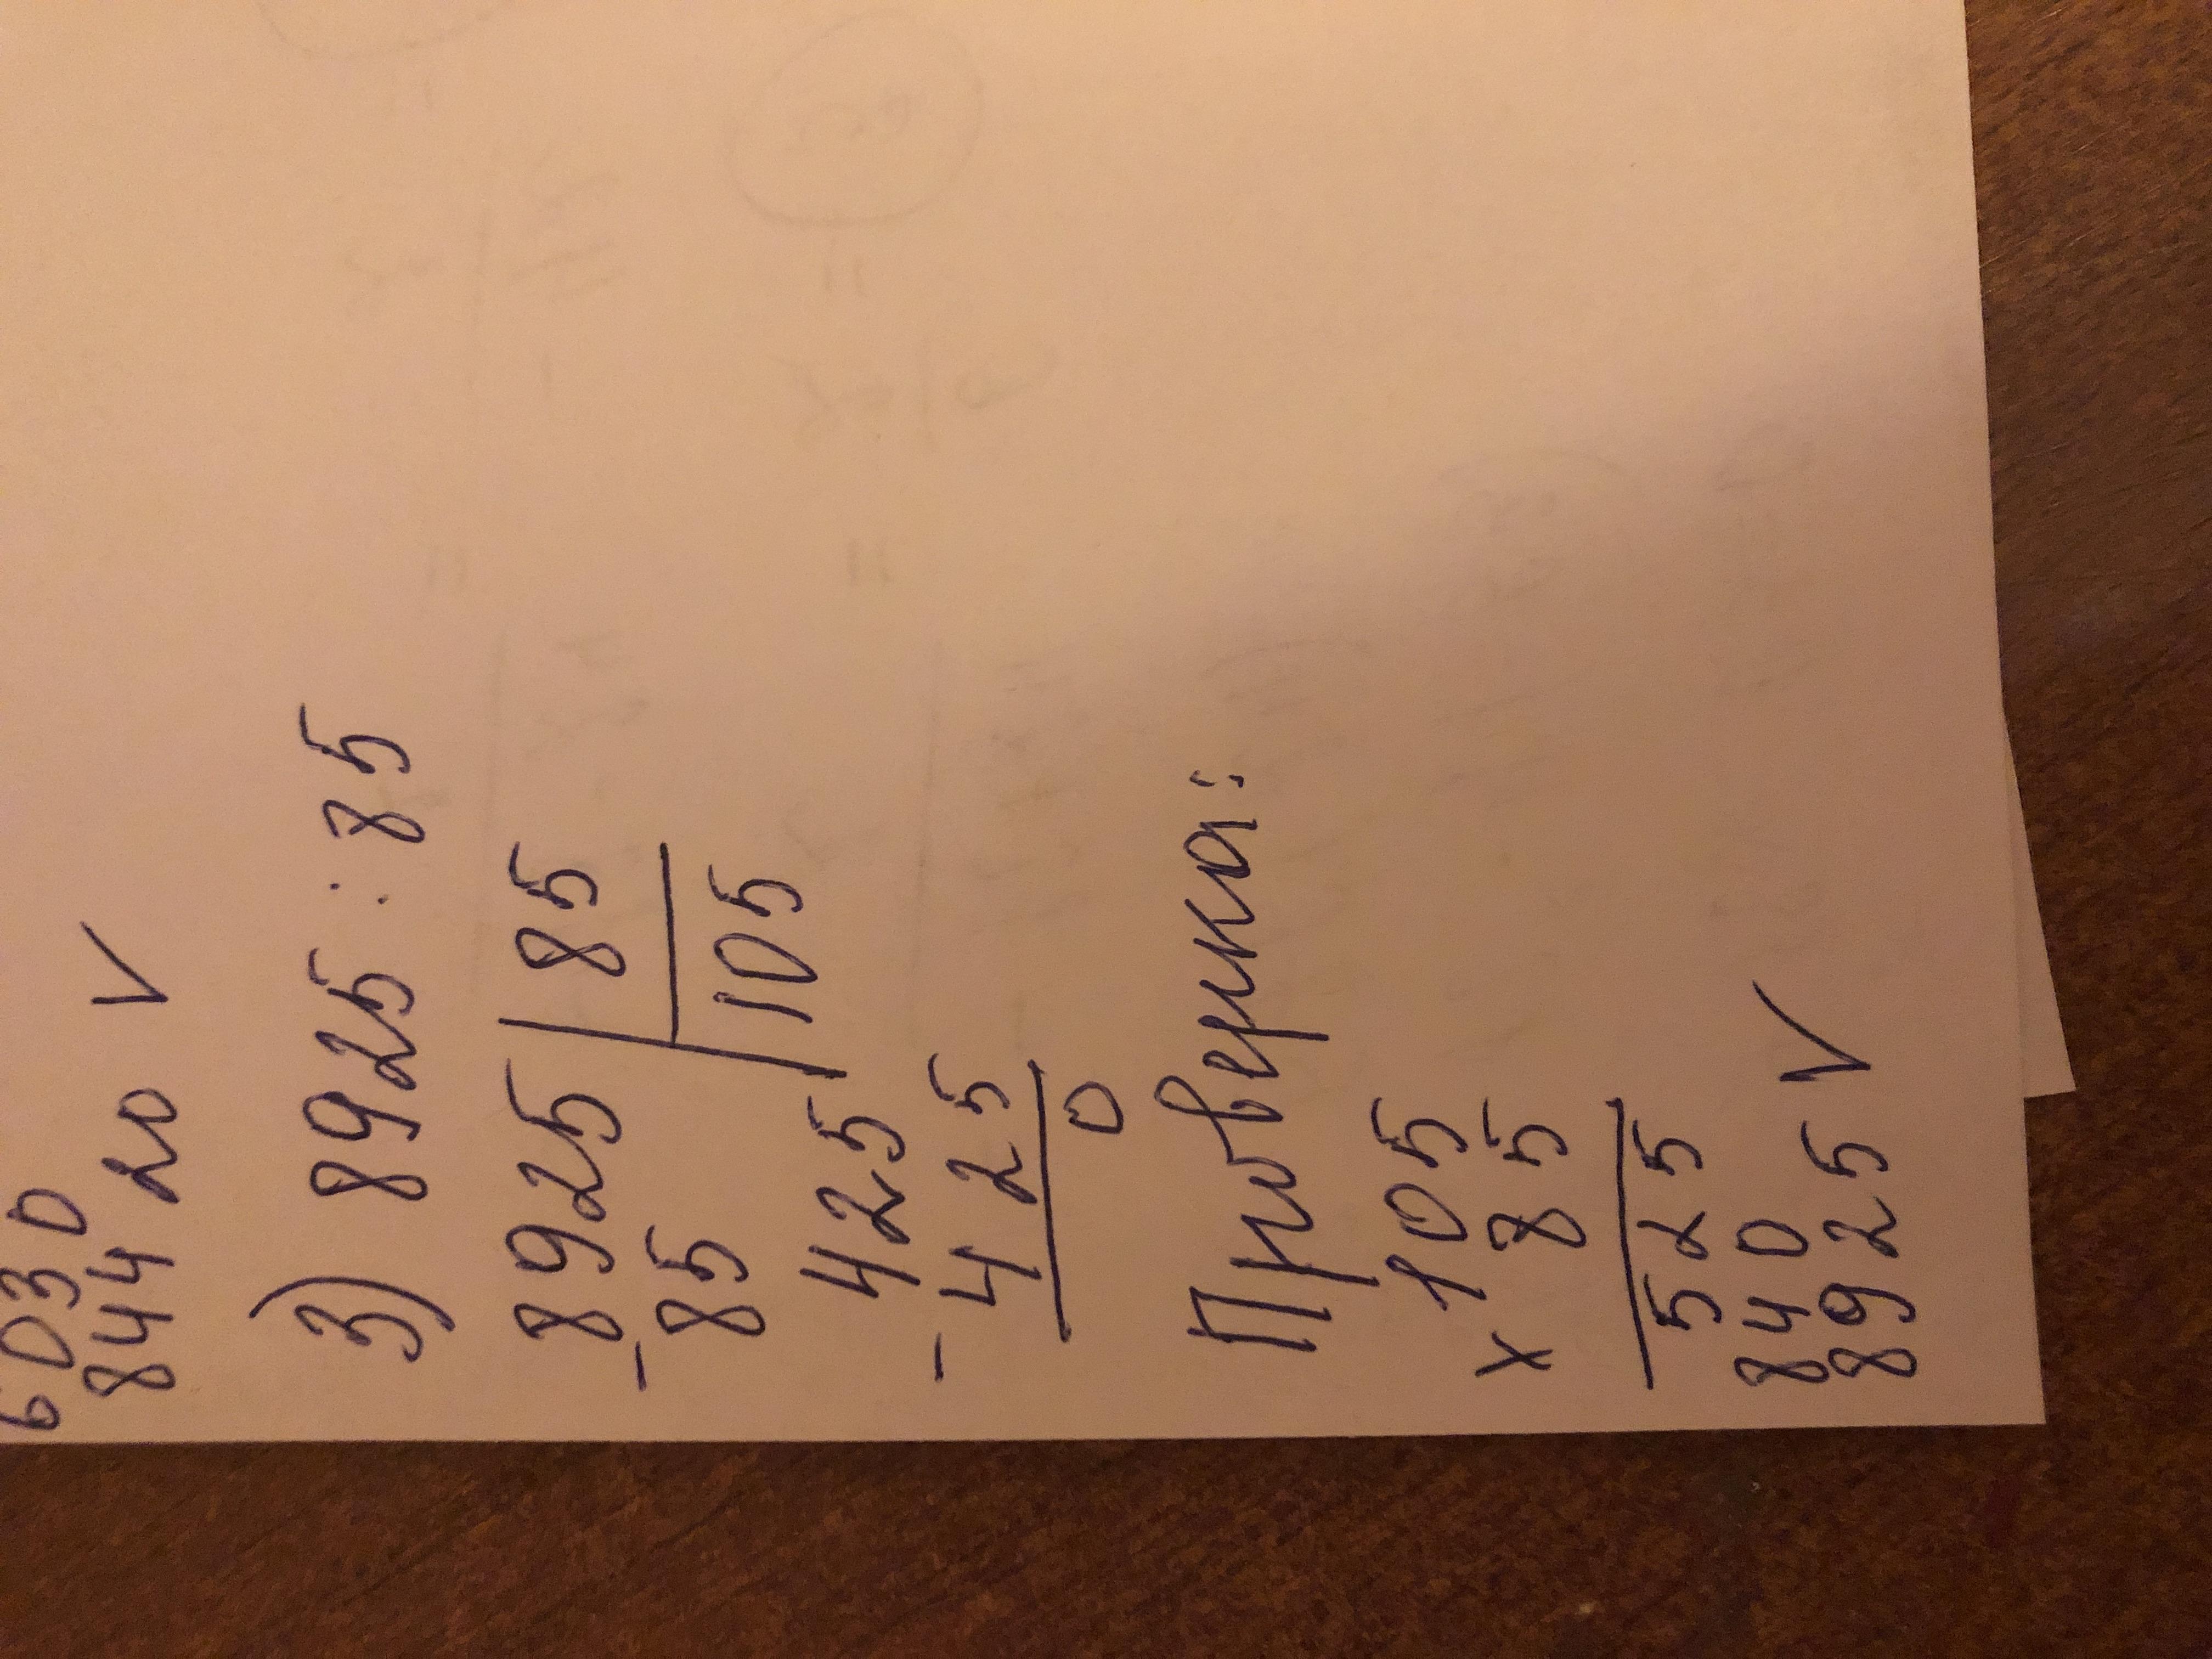 6030
84420 V
3) 8925 : 85
8925 | 85
- 85 | 105
425
- 425
0
Проверка:
105
x 85
525
840
8925 V